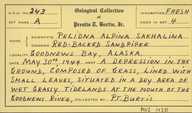 Oological Collection
of
Pewitte T. Burtis, Jr.
No. 243
Set A
Incubation FRESH
Eggs in set 4
Species PELIDNA ALPINA SAKHALINA
Name RED-BACKED SANDPIPER
Locality GOODNEWS BAY, ALASKA.
Date MAY 30TH, 1944. Nest A DEPRESSION IN THE
GROUND, COMPOSED OF GRASS, LINED WITH
SMALL LEAVES, SITUATED IN A DRY AREA OF
WET GRASSY TIDELANDS AT THE MOUTH OF THE
GOODNEWS RIVER. Collected by P.T. BURTIS